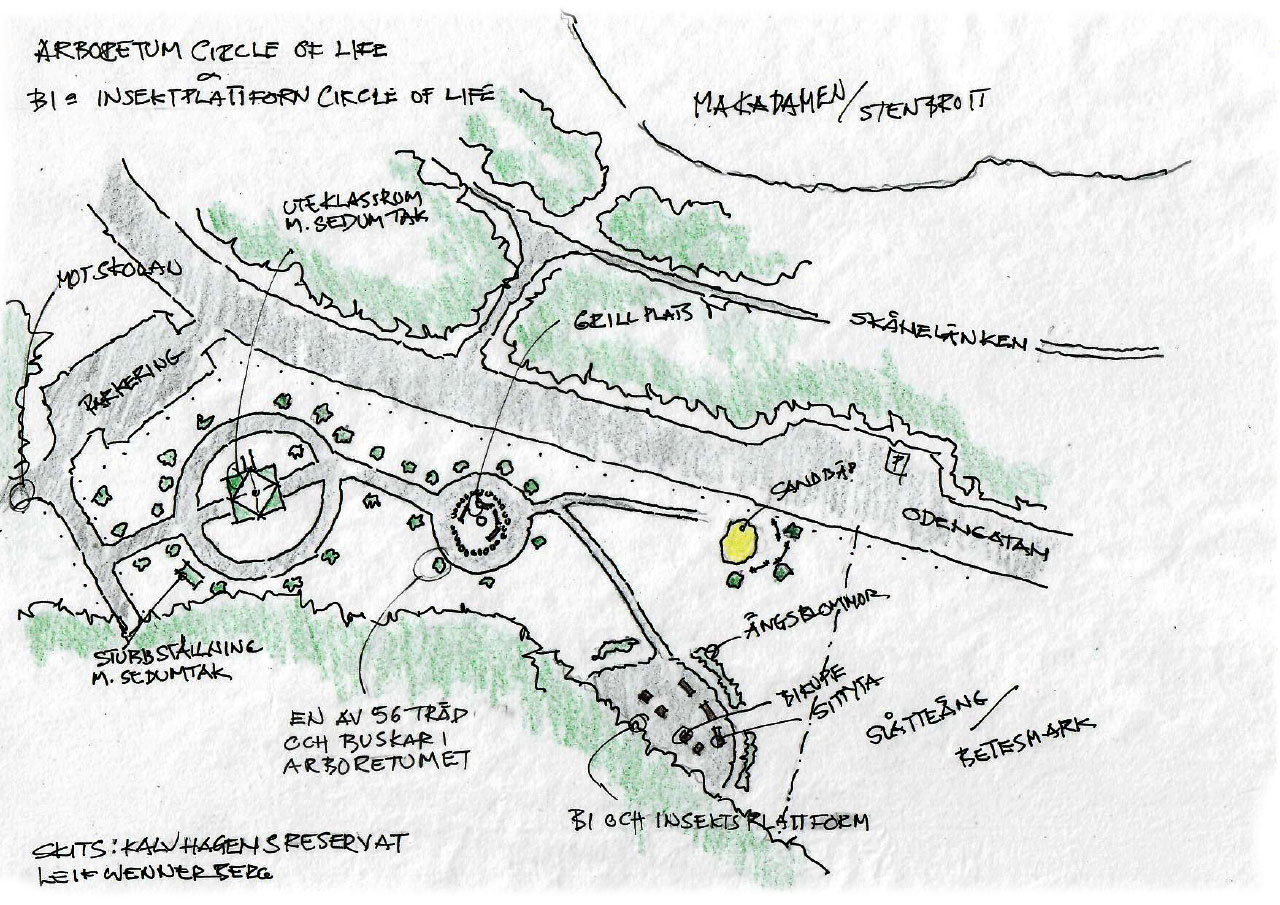 ARBORETUM CIRCLE OF LIFE
&
BI & INSEKTPLATTFORN CIRCLE OF LIFE
MAKADAMEN/STENBROTT
UTEKLASSRUM
M. SEDUMTAK
MOT SKOLAN
GRILLPLATS
SKÅNELÄNKEN
PARKERING
P
SANDBÄD
ODENGATAN
ÄNGSBLOMMOR
STUBBSTÄLLNING
M. SEDUMTAK
BIKUPE
SITTYTA
EN AV 56 TRÄD
OCH BUSKAR I
ARBORETUMET
SLÅTTEÄNG/
BETESMARK
BI OCH INSEKTSPLATTFORM
SKITS: KALVHAGENS RESERVAT
LEIF WENNERBERG